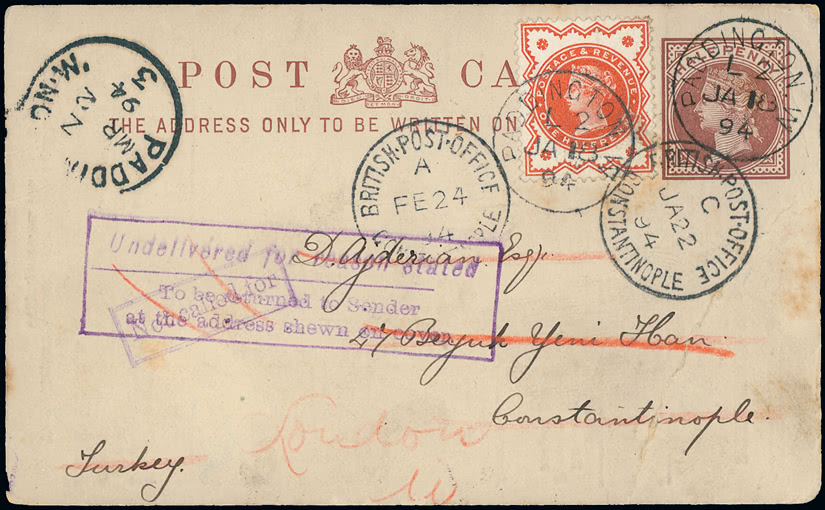 POST CA
THE ADDRESS ONLY TO BE WRITTEN ON
POSTAGE & REVENUE
ONE HALFPENNY
PADDINGTON
L 2
JA 18
94
PADDINGTON W
L 2
JA 18
94
BRITISH·POST·OFFICE
CONSTANTINOPLE
C
JA 22
94
BRITISH·POST·OFFICE
A
FE 24
94
PADDIN
MR
3
94
Undelivered for reason stated
To be returned to Sender
at the address shewn on cover
Not called for
D Ajderian Esq.
27 Buyuk Yeni Han
Constantinople.
Turkey.
London
W